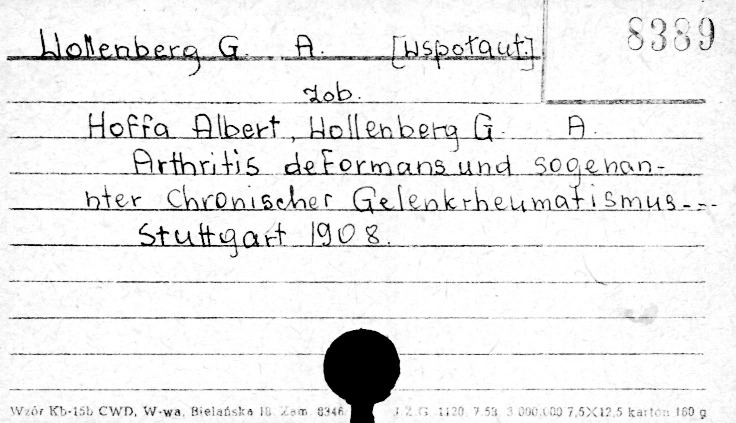 Wollenberg G. A. [wspołaut]
8389
zob.
Hoffa Albert, Wollenberg G. A.
Arthritis deformans und sogenan-
nter Chronischer Gelenkrheumatismus---
Stuttgart 1908.
Wzór Kb-15b CWD, W-wa, Bielańska 18. Zam. 8346 J.Z.G. 1120. 7.53. 3.000.000 7,5X12,5 karton 160 g